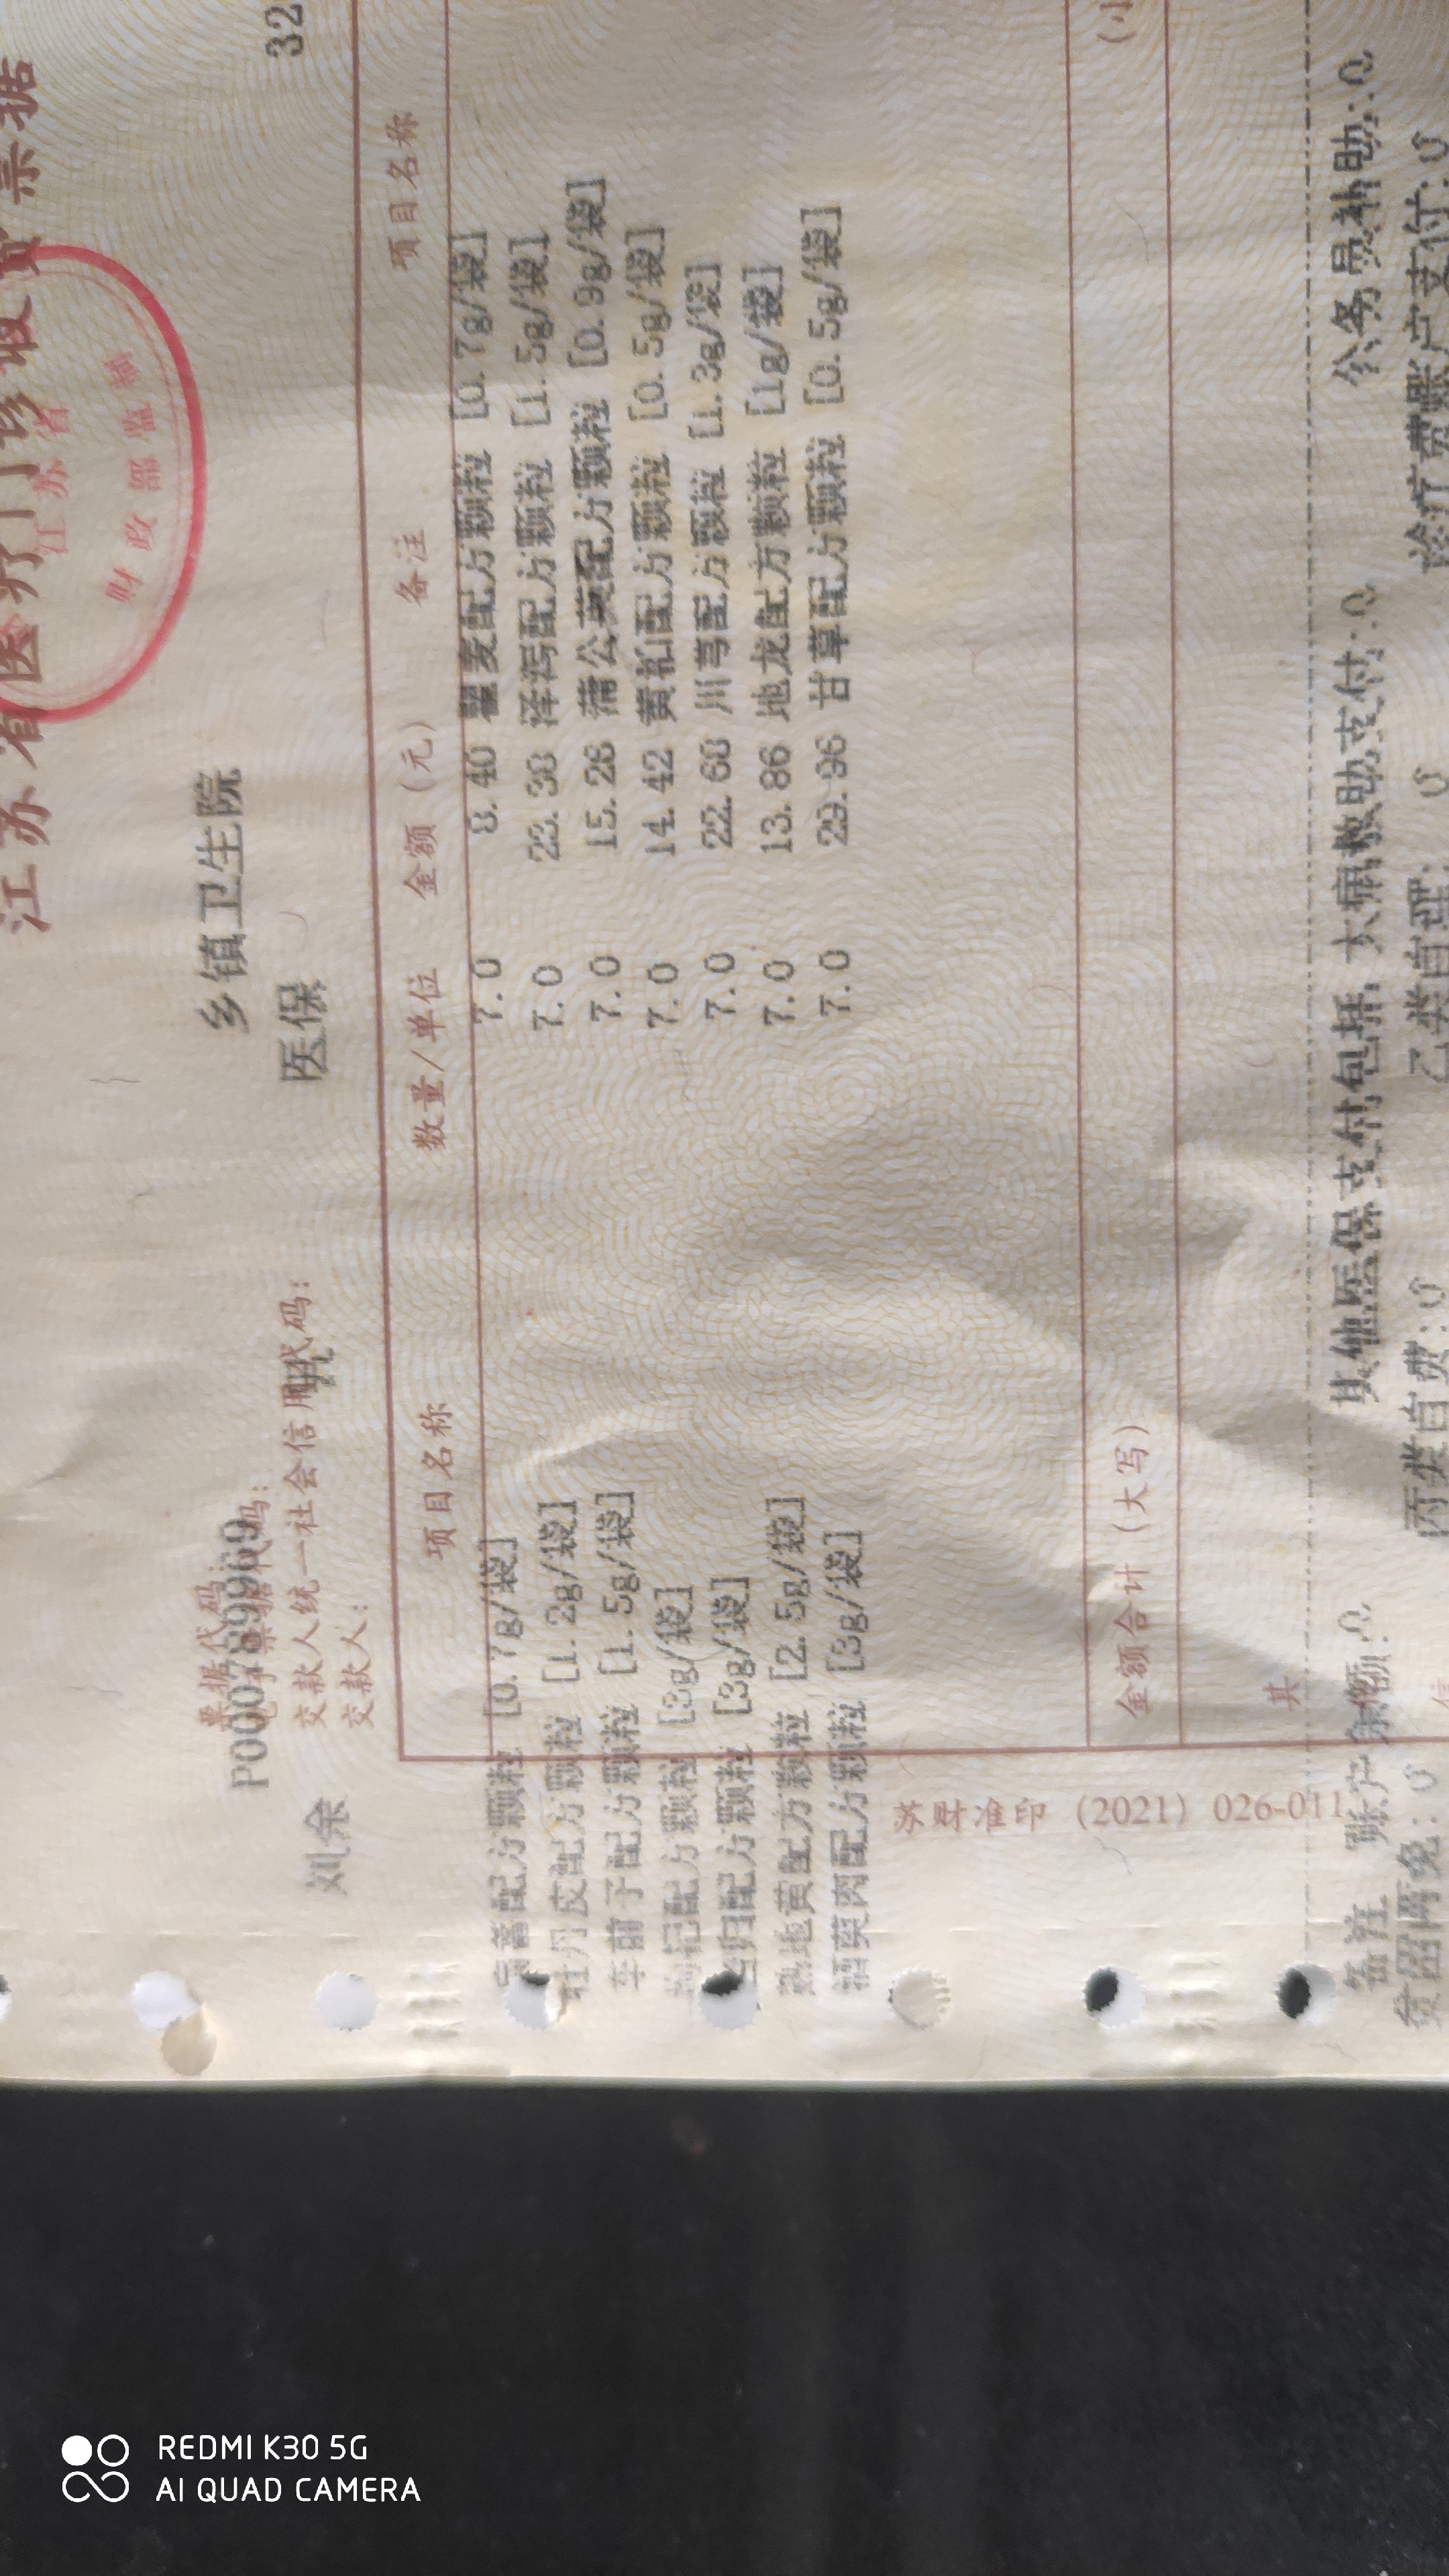 江苏省医疗门诊收费票据
江苏省
财政部监制
乡镇卫生院
32
票据代码:
P000789969
医保
交款人统一社会信用代码:
交款人:
刘余
项目名称 数量/单位 金额(元) 备注 项目名称
配方颗粒 [0.7g/袋] 7.0 8.40 瞿麦配方颗粒 [0.7g/袋]
牡丹皮配方颗粒 [1.2g/袋] 7.0 23.30 泽泻配方颗粒 [1.5g/袋]
车前子配方颗粒 [1.5g/袋] 7.0 15.26 蒲公英配方颗粒 [0.9g/袋]
枸杞配方颗粒 [3g/袋] 7.0 14.42 黄柏配方颗粒 [0.5g/袋]
当归配方颗粒 [3g/袋] 7.0 22.68 川芎配方颗粒 [1.3g/袋]
熟地黄配方颗粒 [2.5g/袋] 7.0 13.86 地龙配方颗粒 [1g/袋]
酒萸肉配方颗粒 [3g/袋] 7.0 29.96 甘草配方颗粒 [0.5g/袋]
苏财准印(2021)026-011
金额合计(大写) (小
其
备注 账户余额:0 其他医保支付包括 大病救助支付:0 公务员补助:0
丙类自费:0 乙类自理: 0 诊疗费账户支付:0
REDMI K30 5G
AI QUAD CAMERA